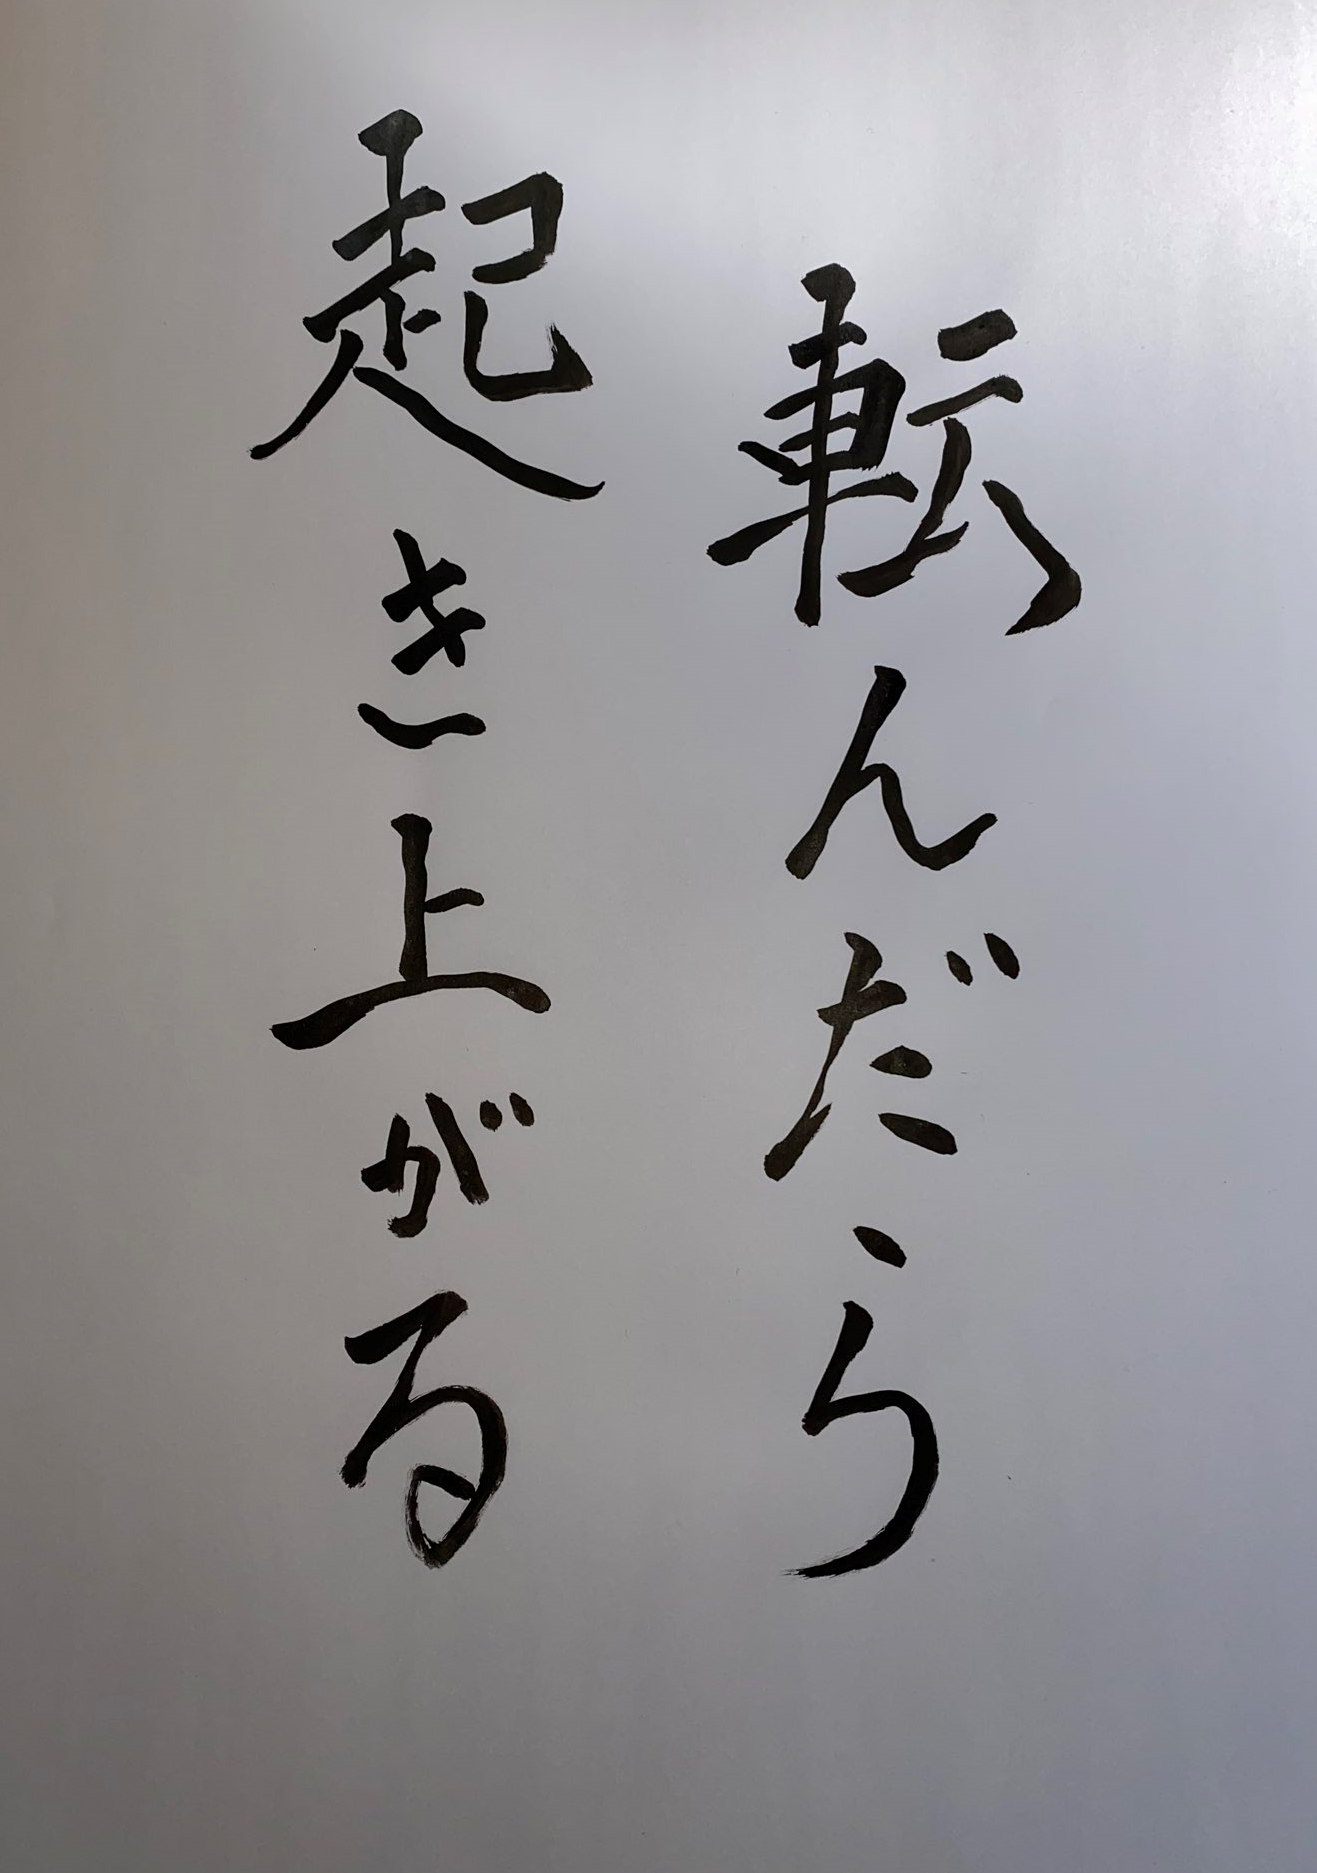 転んだら
起き上がる